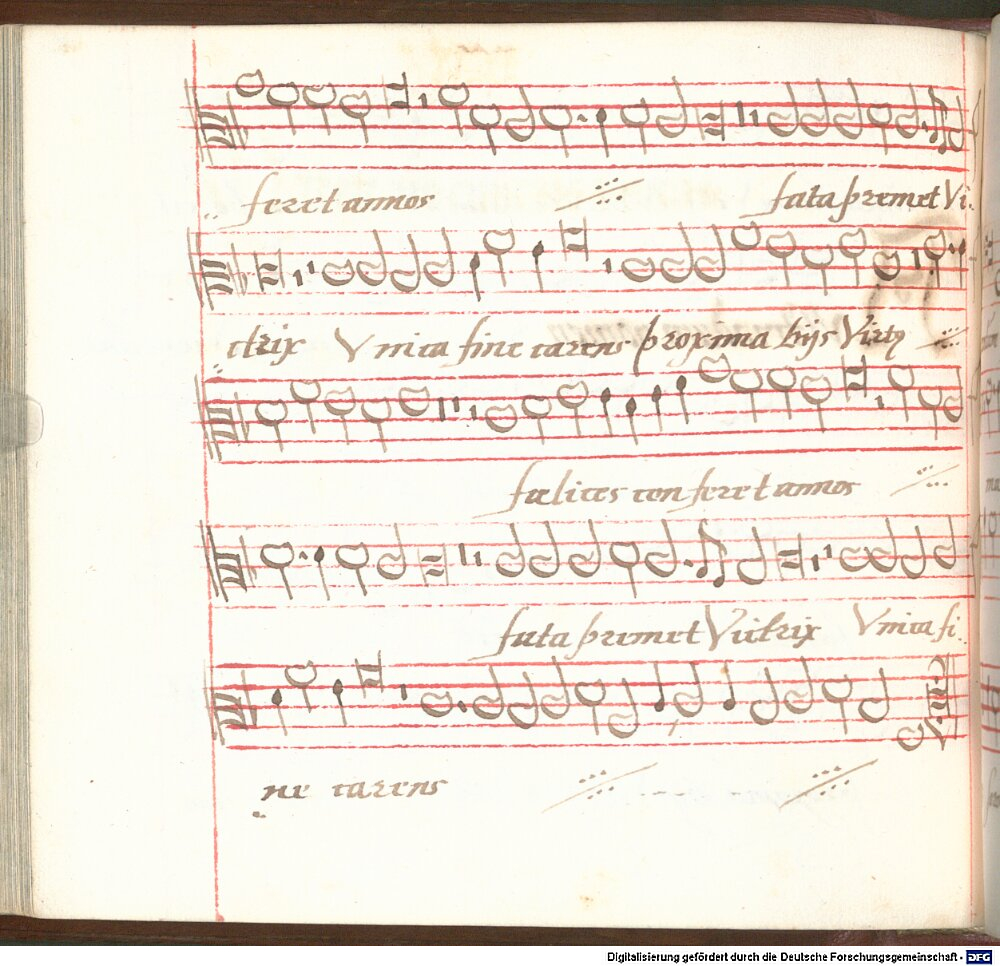 feret annos fata premet Vi
ctrix Vnica fine carens proxima hijs Virt9
fælices conferet annos
fata premet Victrix Vnica fi
ne carens
Digitalisierung gefördert durch die Deutsche Forschungsgemeinschaft - DFG